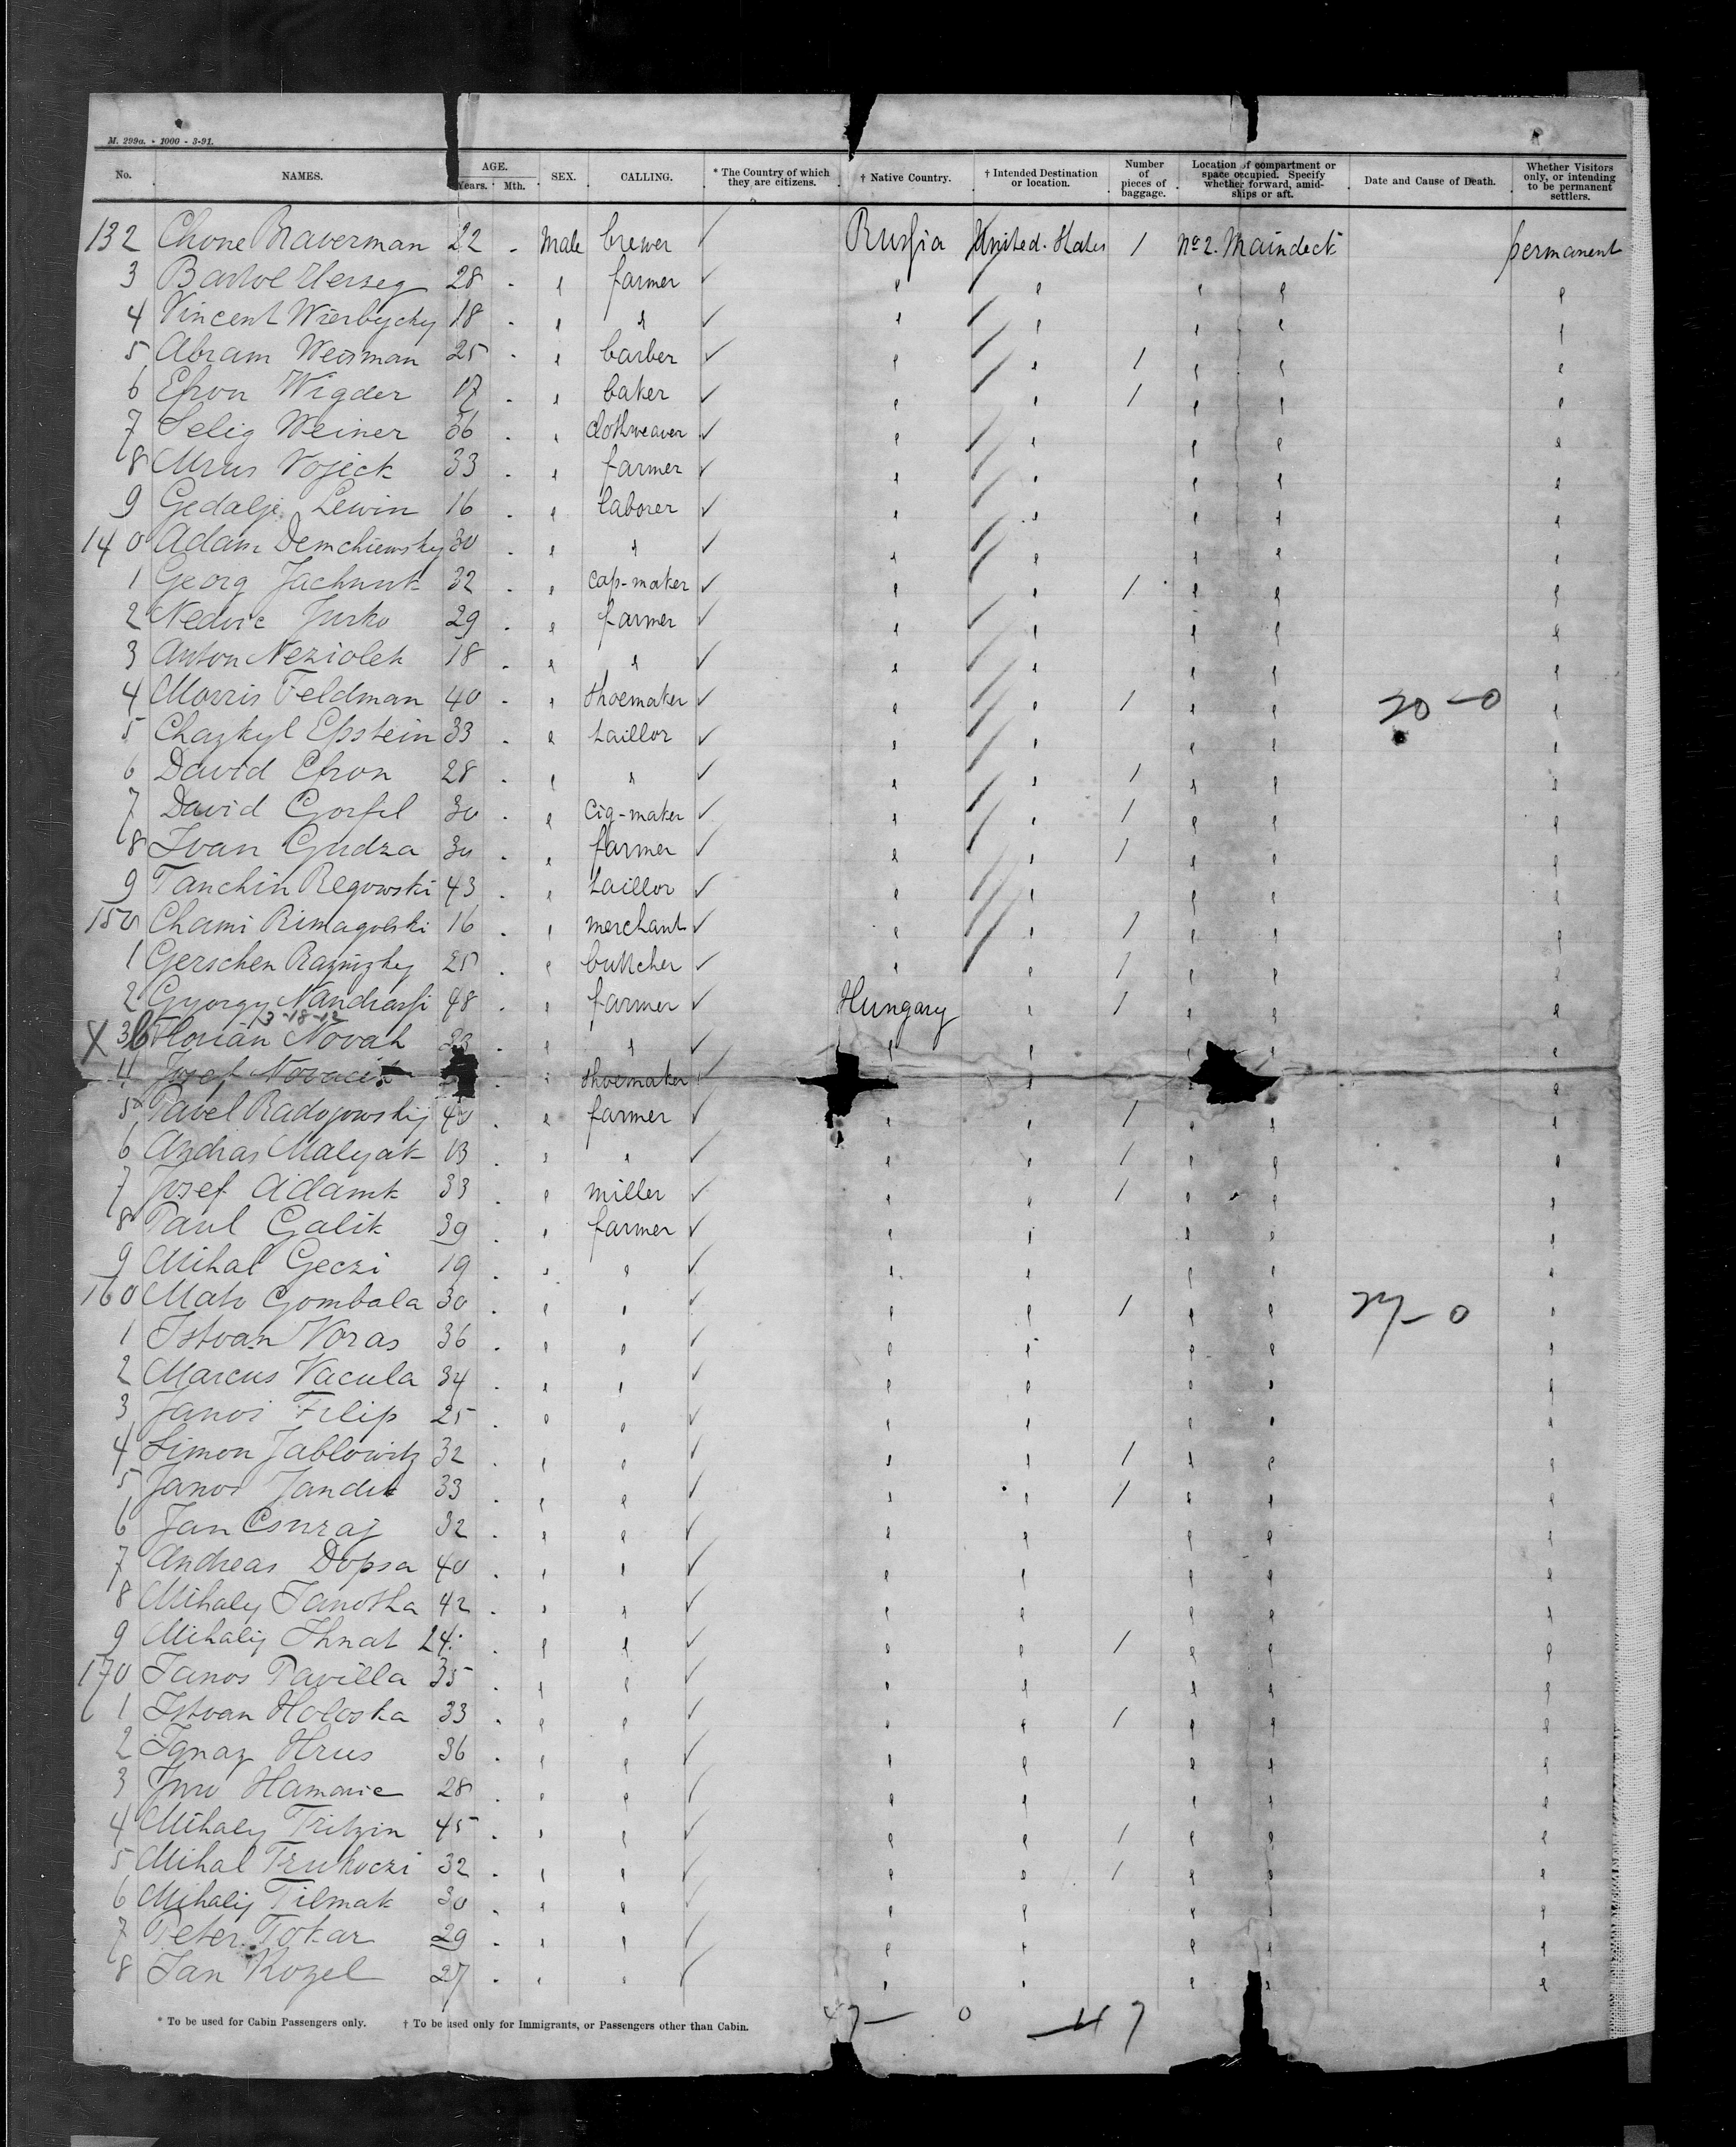 M. 299a. - 1000 - 3-91.
No. NAMES. AGE. Years. Mth. SEX. CALLING. * The Country of which they are citizens. † Native Country. † Intended Destination or location. Number of pieces of baggage. Location of compartment or space occupied. Specify whether forward, amidships or aft. Date and Cause of Death. Whether Visitors only, or intending to be permanent settlers.
132 Chone Braverman 22 . Male brewer ✓ Russia United States 1 No 2. Maindeck permanent
3 Bartol Herseg 28 . " farmer ✓ " " " " "
4 Vincent Wierbycky 18 . " " ✓ " " " " "
5 Abram Weisman 25 . " barber ✓ " " 1 " " "
6 Efron Wigder 17 . " baker ✓ " " 1 " " "
7 Selig Weiner 36 . " clothweaver ✓ " " " " "
8 Mrus Vojeck 33 . " farmer ✓ " " " " "
9 Gedalje Lewin 16 . " laborer ✓ " " " " "
140 Adam Demchiewsky 30 . " " ✓ " " " " "
1 Georg 32 . " cap-maker ✓ " " 1 " " "
2 Nedvic Jurko 29 . " farmer ✓ " " " " "
3 Anton Neziolek 18 . " " ✓ " " " " "
4 Morris Feldman 40 . " shoemaker ✓ " " 1 " " 20-0 "
5 Chazkyl Epstein 33 . " taillor ✓ " " " " "
6 David Efron 28 . " " ✓ " " 1 " " "
7 David Gorfil 30 . " cig-maker ✓ " " 1 " " "
8 Ivan Gudza 30 . " farmer ✓ " " 1 " " "
9 Tanchin Regowski 43 . " taillor ✓ " " " " "
150 Chami Rimagolski 16 . " merchant ✓ " " 1 " " "
1 Gerschen 25 . " buttcher ✓ " " 1 " " "
2 Gyorgy 48 . " farmer ✓ Hungary " 1 " " "
3-18-12
X 3 Florian Novak 23 . " " ✓ " " " " "
4 Josef . " shoemaker ✓ " " "
5 Pavel Radojowskij 40 . " farmer ✓ " " 1 " " "
6 Andras Malyak 13 . " " ✓ " " 1 " " "
7 Josef Adamk 33 . " miller ✓ " " 1 " " "
8 Paul Galik 39 . " farmer ✓ " " " " "
9 Mihal Geczi 19 . " " ✓ " " " " "
160 Mato Gombala 30 . " " ✓ " " 1 " " 27-0 "
1 Istvan Voras 36 . " " ✓ " " " " "
2 Marcus Vacula 34 . " " ✓ " " " " "
3 Janos Filip 25 . " " ✓ " " " " "
4 Simon Jablowitz 32 . " " ✓ " " 1 " " "
5 Janos Jandik 33 . " " ✓ " " 1 " " "
6 Jan Csuraj 32 . " " ✓ " " " " "
7 Andreas Dopsa 40 . " " ✓ " " " " "
8 Mihaly Janoska 42 . " " ✓ " " " " "
9 Mihalij Ihnat 24 . " " ✓ " " 1 " " "
170 Janos Pavilla 35 . " " ✓ " " " " "
1 Istvan Holoska 33 . " " ✓ " " 1 " " "
2 Ignaz Hrus 36 . " " ✓ " " " " "
3 Juro Hamovic 28 . " " ✓ " " " " "
4 Mihaly Tritzin 45 . " " ✓ " " 1 " " "
5 Mihal Truhoczi 32 . " " ✓ " " 1 " " "
6 Mihalij Tilmak 30 . " " ✓ " " " " "
7 Peter Tokar 29 . " " ✓ " " " " "
8 Jan Kozel 27 . " " ✓ " " " " "
* To be used for Cabin Passengers only. † To be used only for Immigrants, or Passengers other than Cabin. 47 — 0 — 47